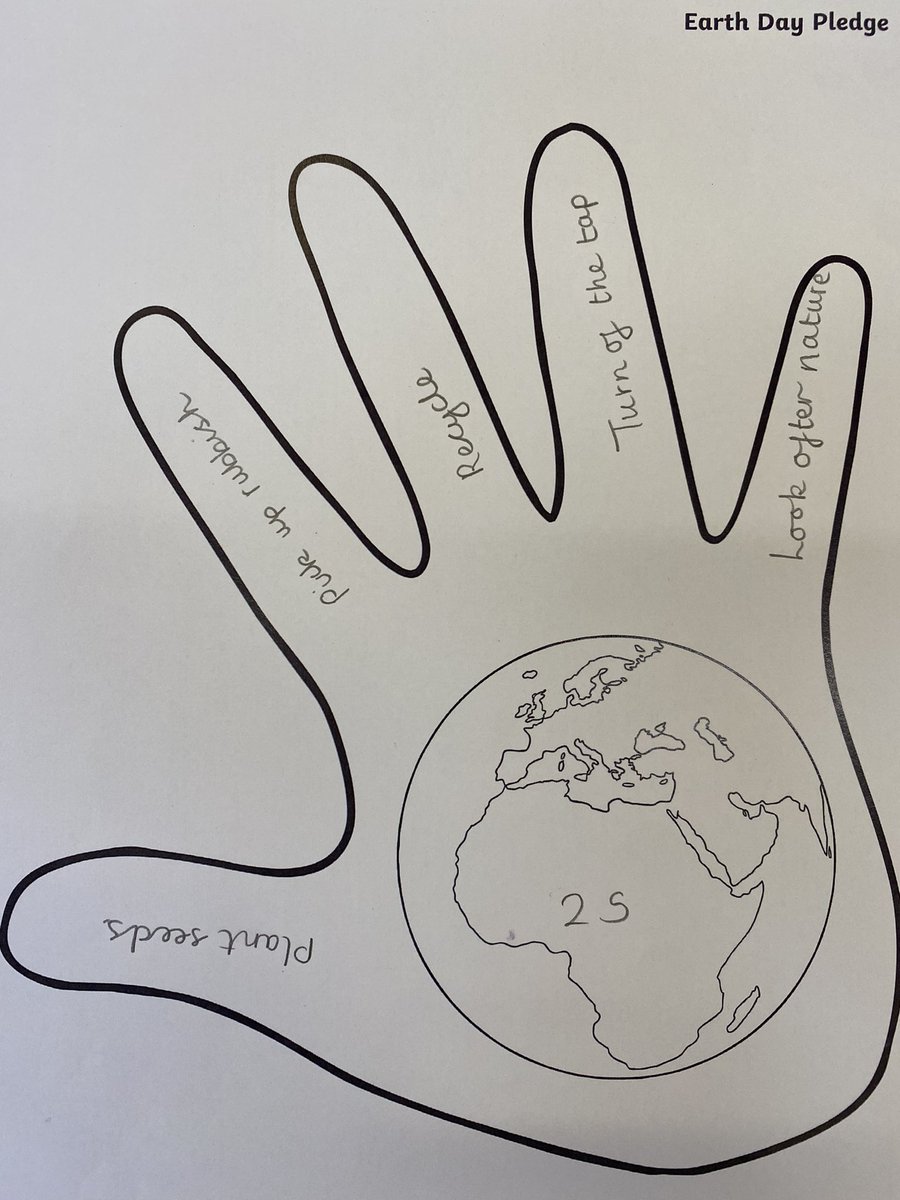 Earth Day Pledge
Plant seeds
Pick up rubbish
Recycle
Turn of the tap
Look after nature
2S